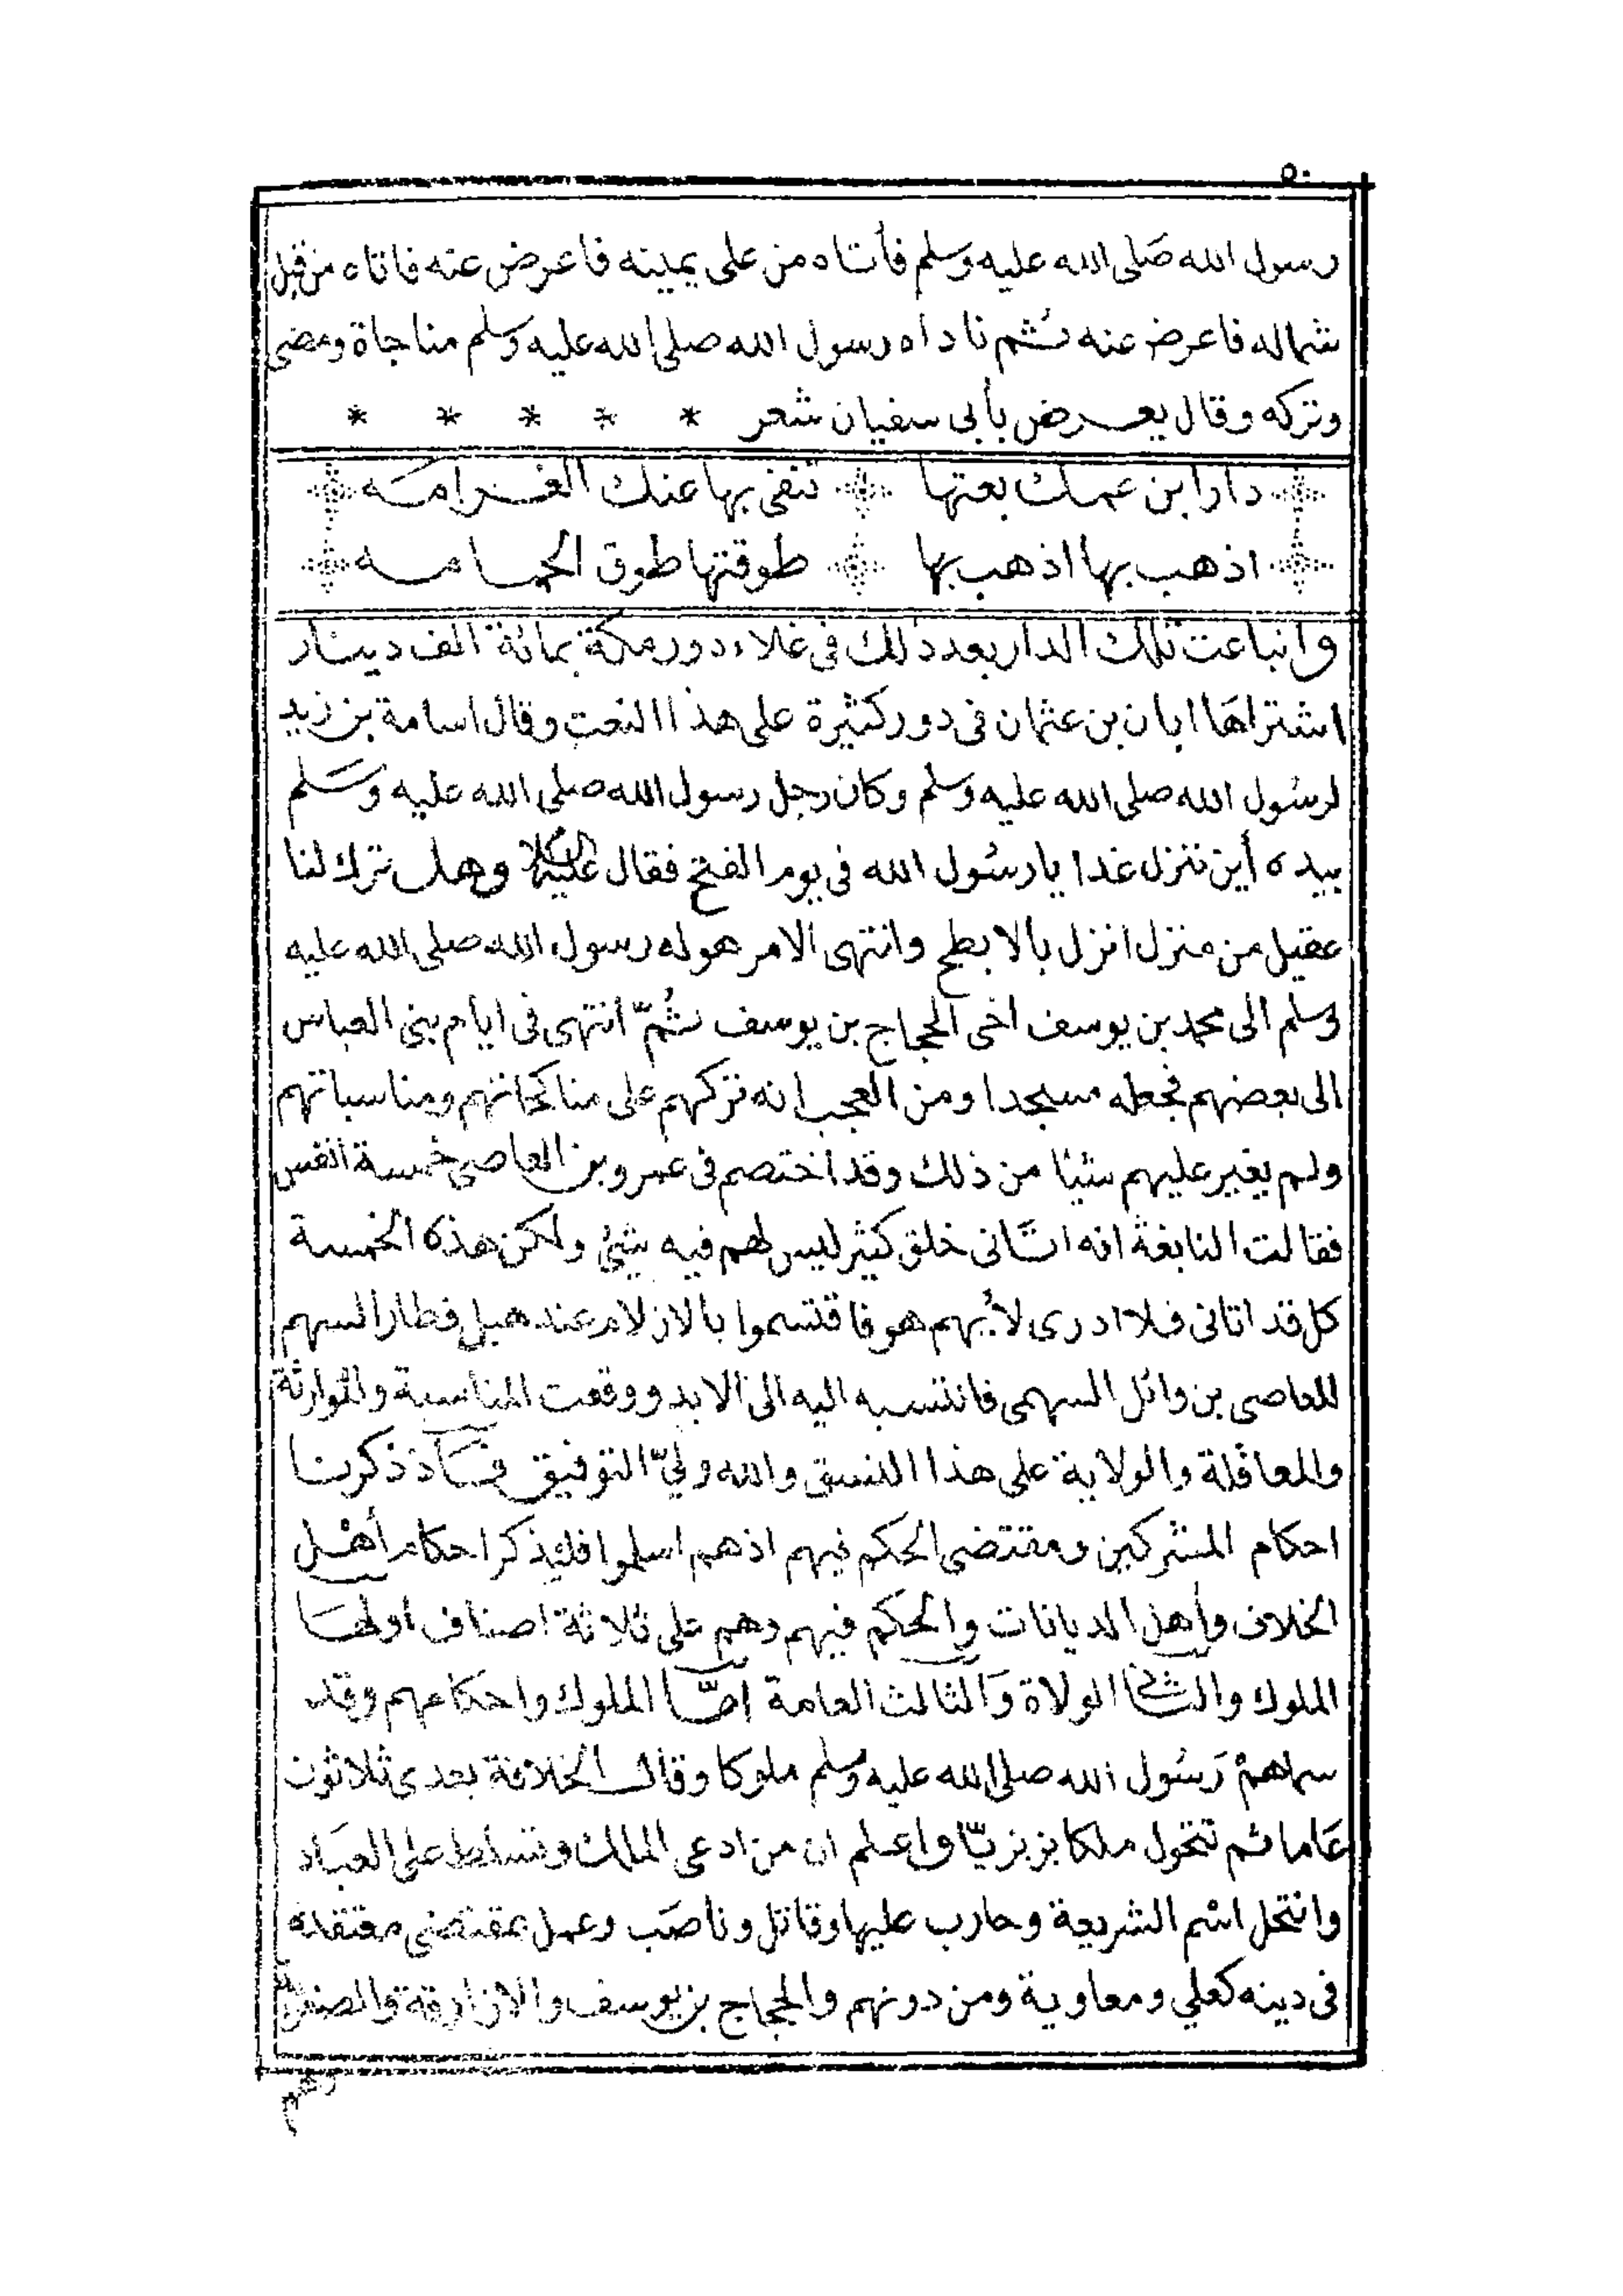 ٥٠
رسول الله صَلى الله عليه وَسَلم فأتاه من على يمينه فاعرض عنه فاتاه من قبل
شماله فاعرض عنه ثم ناداه رسول الله صلى الله عليه وسلم مناجاة ومضى
وتركه وقال يعرض بأبى سفيان شعر * * * * *
دار ابن عمك بعتها تنفى بها عنك الغرامَه
اذهب بها اذهب بها طوقتها طوق الحمامه
وانباعت تلك الدار بعد ذلك فى غلاء دور مكة بمائة الف دينار
اشتراهَا ابان بن عثمان فى دور كثيرة على هذا النعت وقال اسامة بن زيد
لرسُول الله صلى الله عليه وسلم وكان رجل رسول الله صلى الله عليه وَسَلم
بيده أين ننزل غدا يا رسُول الله فى يوم الفتح فقال عليه السلام وهل ترك لنا
عقيل من منزل انزل بالابطح وانتهى الامر هوله رسول الله صلى الله عليه
وسلم الى محمد بن يوسف اخى الحجاج بن يوسف ثُمّ انتهى فى ايام بنى العباس
الى بعضهم فجعله مسجدا ومن العجب انه تركهم على مناكحاتهم ومناسباتهم
ولم يغير عليهم شيئا من ذلك وقد اختصم فى عمرو بن العاصى خمسة انفس
فقالت النابغة انه اتَانى خلق كثير ليس لهم فيه شئ ولكن هذه الخمسة
كل قد اتانى فلا ادرى لأيهم هو فاقتسموا بالازلام عند هبل فطار السهم
للعاصى بن وائل السهمى فانتسبه اليه الى الابد ووقعت المناسبة والموارثة
والمعاقلة والولاية على هذا النسق والله وليّ التوفيق فَاذ ذكرنا
احكام المشركين ومقتضى الحكم فيهم اذهم اسلموا فلنذكر احكام أهْل
الخلاف وأهل الديانات والحكم فيهم وهم على ثلاثة اصناف اولهَا
الملوك والثانى الولاة وَالثالث العامة امّا الملوك واحكامهم وقد
سماهمْ رَسُول الله صلى الله عليه وسلم ملوكا وقال الخلافة بعدى ثلاثون
عَاما ثم تتحول ملكا بزبزيّا واعلم ان من ادعى الملك وتسلط على العبَاد
وانتحل اسْم الشريعة وحارب عليها وقاتل وناصَب وعمل بمقتضى معتقده
فى دينه كعلي ومعاوية ومن دونهم والحجاج بن يوسف والازارقة والصفرية